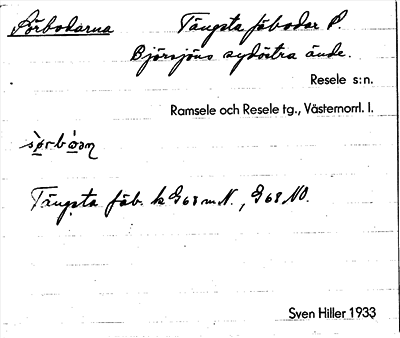 Sörbodarna Tängsta fäbodar P.
Björsjöns sydöstra ände.
Resele s:n.
Ramsele och Resele tg., Västernorrl. l.
Tängsta fäb. k G68 m N., G68 NO.
Sven Hiller 1933